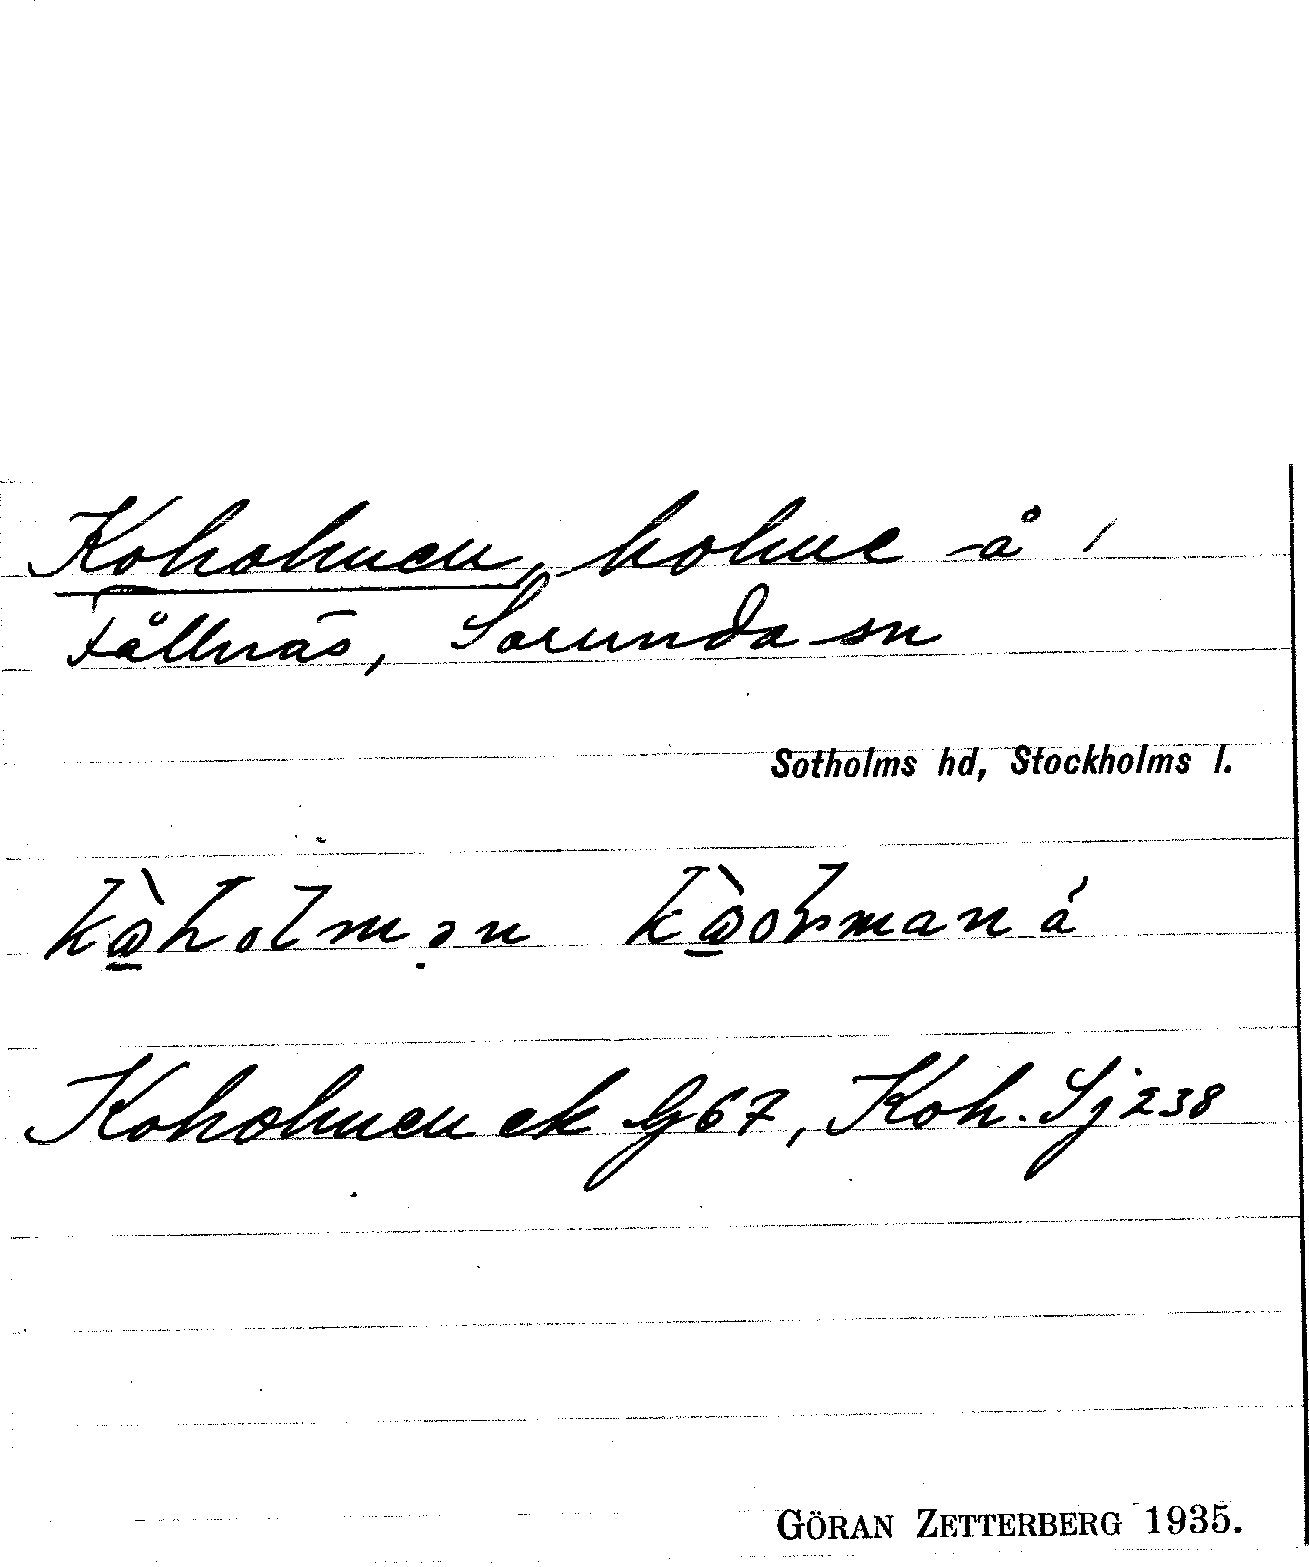 Koholmen, holme å /
Fållnäs, Sorunda sn
Sotholms hd, Stockholms l.
kòholmən kòolmaná
Koholmen ek G67, Koh. Sj 238
GÖRAN ZETTERBERG 1935.